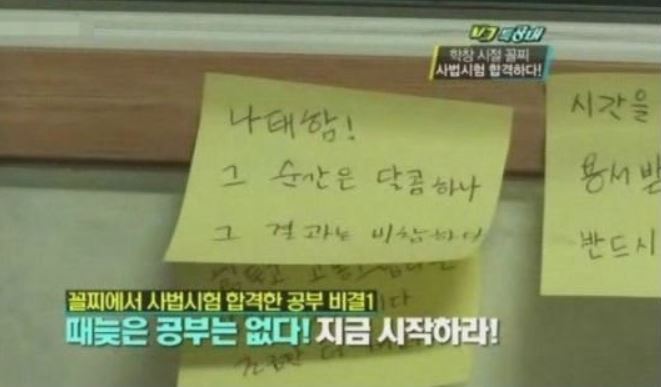 VJ 특공대
학창 시절 꼴찌
사법시험 합격하다!
나태함!
그 순간은 달콤하나
그 결과는 비참하다
시간을
용서받
반드시
꼴찌에서 사법시험 합격한 공부 비결1
때늦은 공부는 없다! 지금 시작하라!